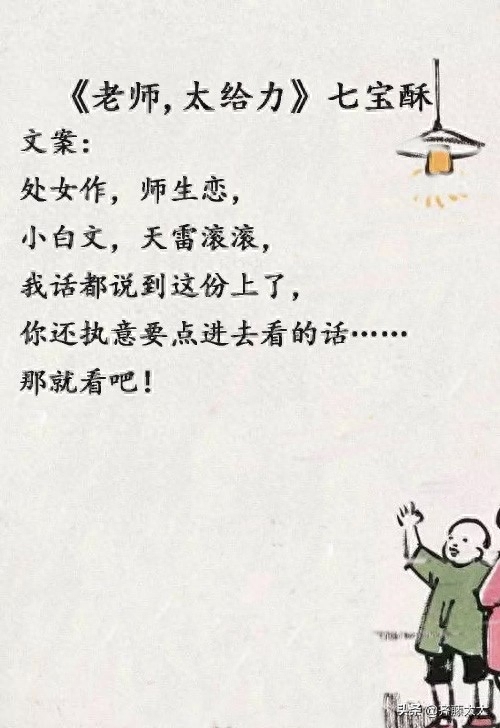 《老师,太给力》七宝酥
文案：
处女作，师生恋，
小白文，天雷滚滚，
我话都说到这份上了，
你还执意要点进去看的话……
那就看吧！
头条 @择颐太太